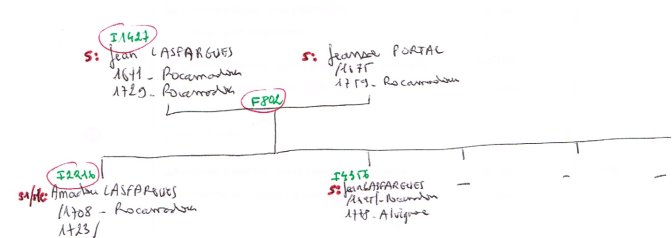 I1427
S: Jean LASFARGUES
1671 - Rocamadour
1729 - Rocamadour
S: Jeanne PORTAL
/1675
1759 - Rocamadour
F802
I2216
LASFARGUES
/1708 - Rocamadour
1723/
I4356
S: Jean LASFARGUES
Rocamadour
1778 - Alvignac